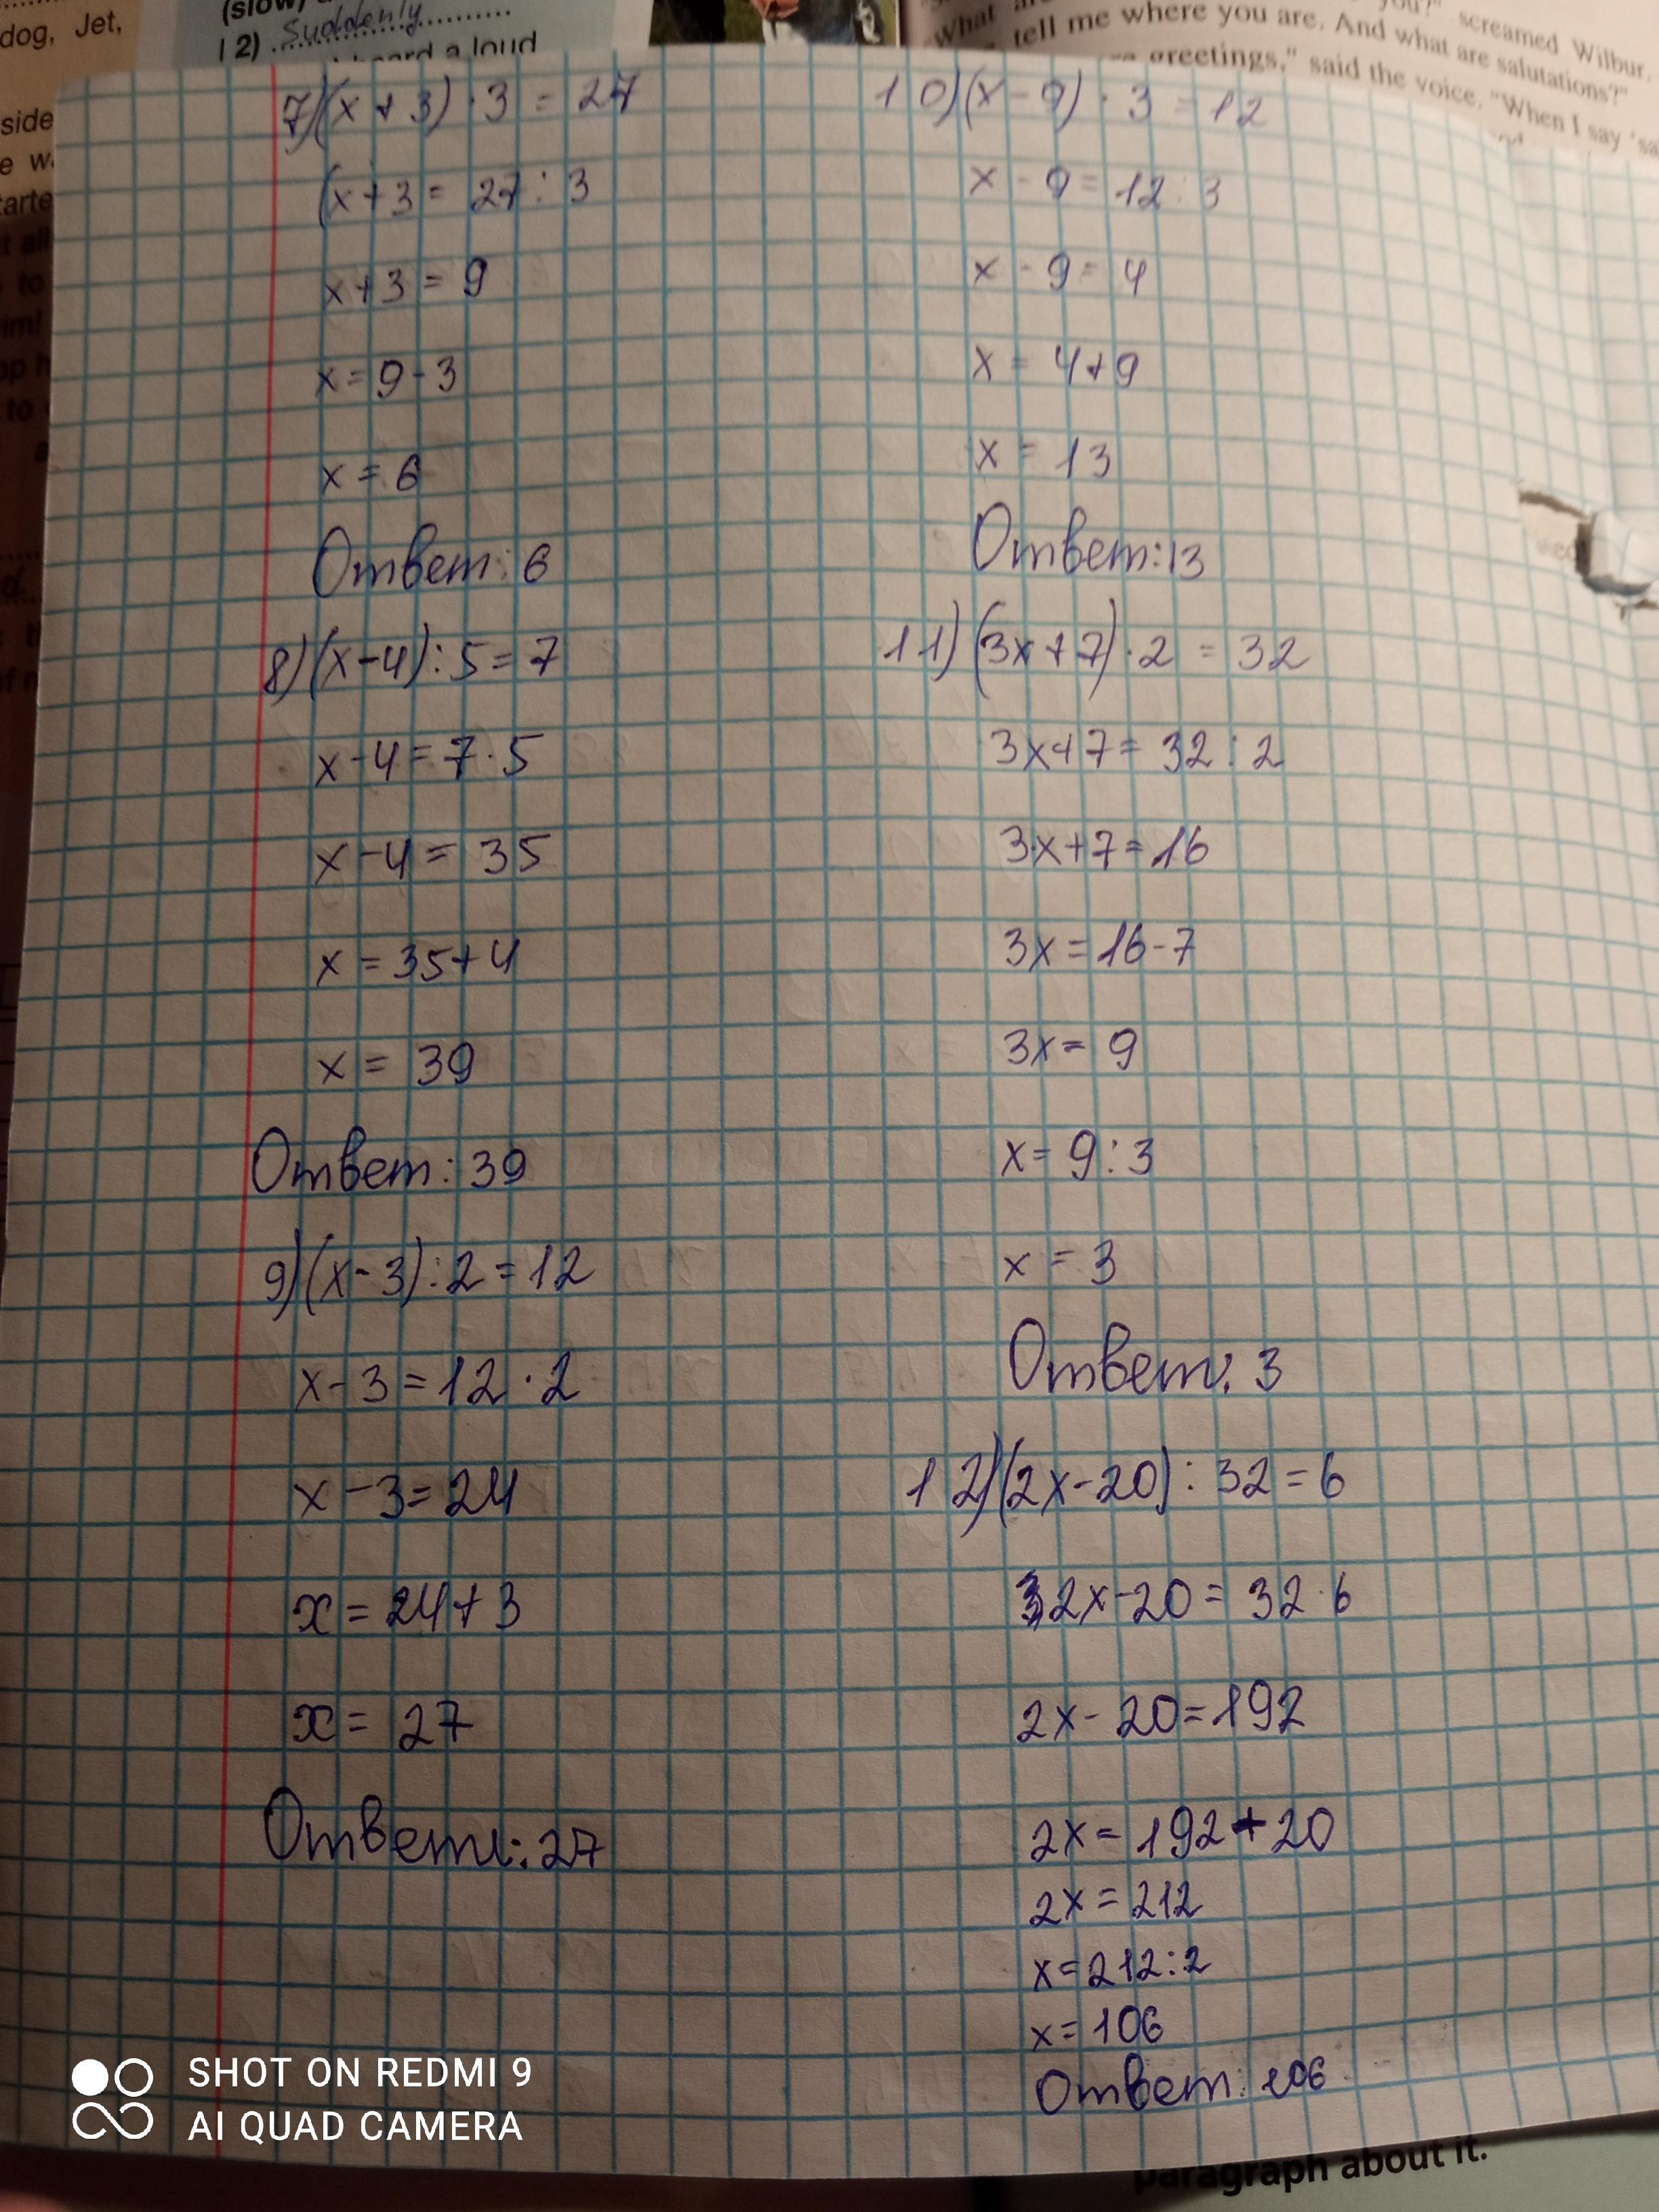 dog, Jet,
(slow)
12) Suddenly
heard a loud
you?" screamed Wilbur.
"What
tell me where you are. And what are salutations?"
greetings," said the voice. "When I say
side
7)(x+3)·3=27
(x+3=27:3
x+3=9
x=9-3
x=6
Ответ: 6
8)(x-4):5=7
x-4=7·5
x-4=35
x=35+4
x=39
Ответ: 39
9)(x-3):2=12
x-3=12·2
x-3=24
x=24+3
x=27
Ответ: 27
10)(x-9)·3=12
x-9=12:3
x-9=4
x=4+9
x=13
Ответ: 13
11)(3x+7)·2=32
3x+7=32:2
3x+7=16
3x=16-7
3x=9
x=9:3
x=3
Ответ: 3
12)(2x-20):32=6
2x-20=32·6
2x-20=192
2x=192+20
2x=212
x=212:2
x=106
Ответ: 106
SHOT ON REDMI 9
AI QUAD CAMERA
paragraph about it.